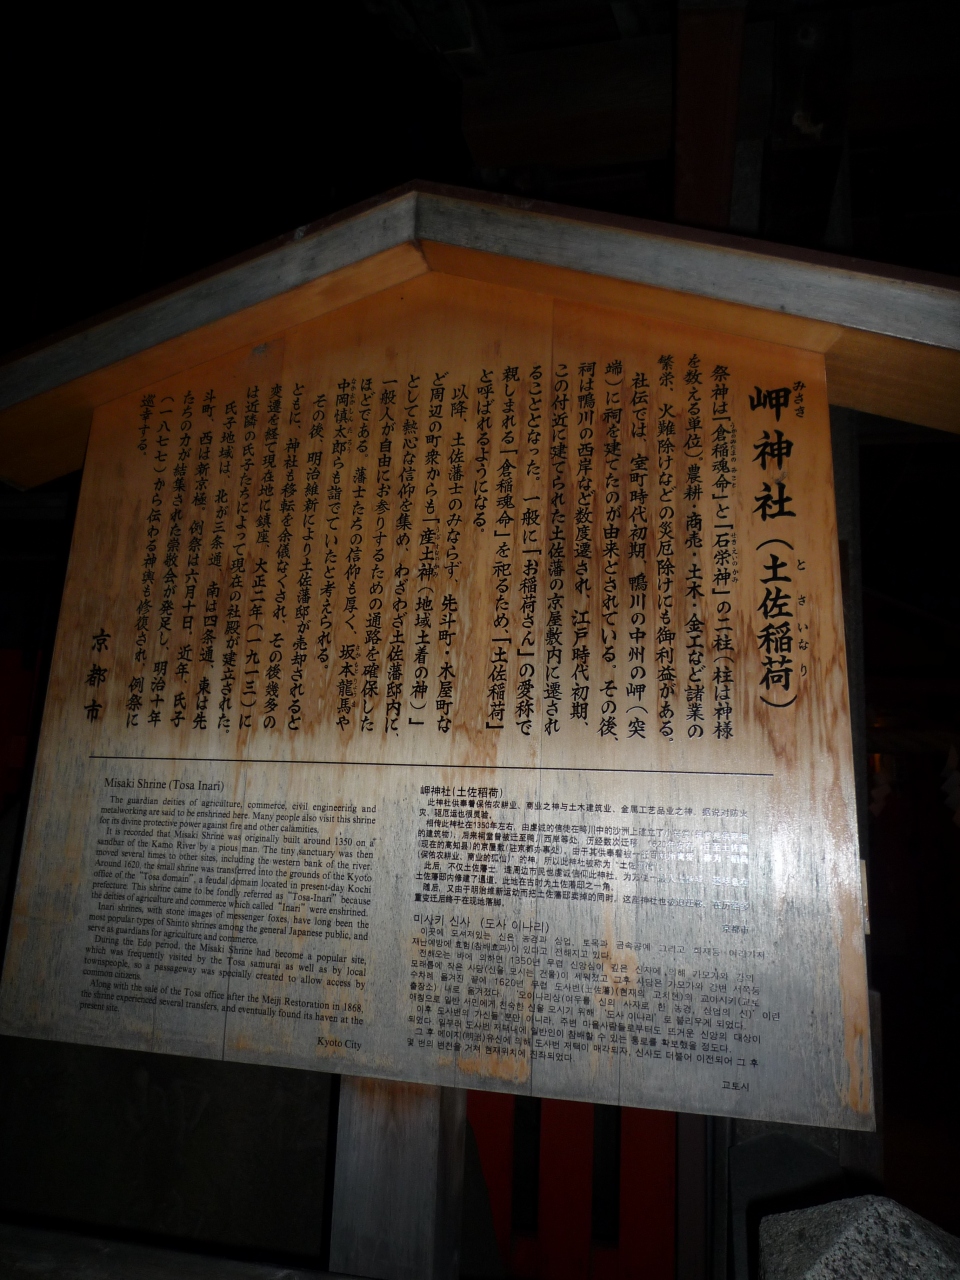 岬神社（土佐稲荷）
みさき
とさいなり
祭神は「倉稲魂命」と「石栄神」の二柱（柱は神様
を数える単位）。農耕・商売・土木・金工など諸業の
繁栄、火難除けなどの災厄除けにも御利益がある。
社伝では、室町時代初期、鴨川の中州の岬（突
端）に祠を建てたのが由来とされている。その後、
祠は鴨川の西岸など数度遷され、江戸時代初期、
この付近に建てられた土佐藩の京屋敷内に遷され
ることとなった。一般に「お稲荷さん」の愛称で
親しまれる「倉稲魂命」を祀るため、「土佐稲荷」
と呼ばれるようになる。
以降、土佐藩士のみならず、先斗町・木屋町な
ど周辺の町衆からも「産土神（地域土着の神）」
として熱心な信仰を集め、わざわざ土佐藩邸内に、
一般人が自由にお参りするための通路を確保した
ほどである。藩士たちの信仰も厚く、坂本龍馬や
中岡慎太郎らも詣でていたと考えられる。
その後、明治維新により土佐藩邸が売却されると
ともに、神社も移転を余儀なくされ、その後幾多の
変遷を経て現在地に鎮座、大正二年（一九一三）に
は近隣の氏子たちによって現在の社殿が建立された。
氏子地域は、北が三条通、南は四条通、東は先
斗町、西は新京極。例祭は六月十日。近年、氏子
たちの力が結集された崇敬会が発足し、明治十年
（一八七七）から伝わる神輿も修復され、例祭に
巡幸する。
京都市
Misaki Shrine (Tosa Inari)
The guardian deities of agriculture, commerce, civil engineering and
metalworking are said to be enshrined here. Many people also visit this shrine
for its divine protective power against fire and other calamities.
It is recorded that Misaki Shrine was originally built around 1350 on a
sandbar of the Kamo River by a pious man. The tiny sanctuary was then
moved several times to other sites, including the western bank of the river.
Around 1620, the small shrine was transferred into the grounds of the Kyoto
office of the "Tosa domain", a feudal domain located in present-day Kochi
prefecture. This shrine came to be fondly referred as "Tosa-Inari" because
the deities of agriculture and commerce which called "Inari" were enshrined.
Inari shrines, with stone images of messenger foxes, have long been the
most popular types of Shinto shrines among the general Japanese public, and
serve as guardians for agriculture and commerce.
During the Edo period, the Misaki Shrine had become a popular site,
which was frequently visited by the Tosa samurai as well as by local
townspeople, so a passageway was specially created to allow access by
common citizens.
Along with the sale of the Tosa office after the Meiji Restoration in 1868,
the shrine experienced several transfers, and eventually found its haven at the
present site.
Kyoto City
岬神社（土佐稻荷）
此神社供奉着保佑农耕业、商业之神与土木建筑业、金属工艺品业之神。据说对防火
灾、驱厄运也很灵验。
相传此神社在1350年左右，由虔诚的信徒在鸭川中的沙洲上建立了
的建筑物），后来祠堂曾被迁至鸭川西岸等处，历经数次迁移，
(现在的高知县)的京屋敷(驻京都办事处)。由于其供奉着被
(保佑农耕业、商业的狐仙)"的神，所以此神社被称为"土
此后，不仅土佐藩士，连周边市民也虔诚信仰此神社，为方便一
土佐藩邸内修建了通道。此地在古时为土佐藩邸之一角。
随后，又由于明治维新运动而把土佐藩邸卖掉的同时，这
重变迁后终于在现地落脚。
京都市
미사키 신사 (도사 이나리)
이곳에 모셔져있는 신은 농경과 상업, 토목과 금속공예 그리고 화재등
재난예방에 효험(참배효과)이 있다고 전해지고 있다.
전해오는 바에 의하면 1350년 무렵 신앙심이 깊은 신자에 의해 가모가와 강의
모래톱에 작은 사당(신을 모시는 건물)이 세워졌고 그후 사당은 가모가와 강변 서쪽등
수차례 옮겨진 끝에 1620년 무렵 도사번(土佐藩)(현재의 고치현)의 교야시키(교토
출장소) 내로 옮겨졌다. 오이나리상(여우를 신의 사자로 한 농경, 상업의 신)" 이란
애칭으로 일반 서민에게 친숙한 신을 모시기 위해 '도사 이나리' 로 불리우게 되었다.
이후 도사번의 가신들 뿐만 아니라, 주변 마을사람들로부터도 뜨거운 신앙의 대상이
되었다. 일부러 도사번 저택내에 일반인이 참배할 수 있는 통로를 확보했을 정도다.
그 후 메이지(明治)유신에 의해 도사번 저택이 매각되자, 신사도 더불어 이전되어 그 후
몇 번의 변천을 거쳐 현재위치에 진좌되었다.
교토시